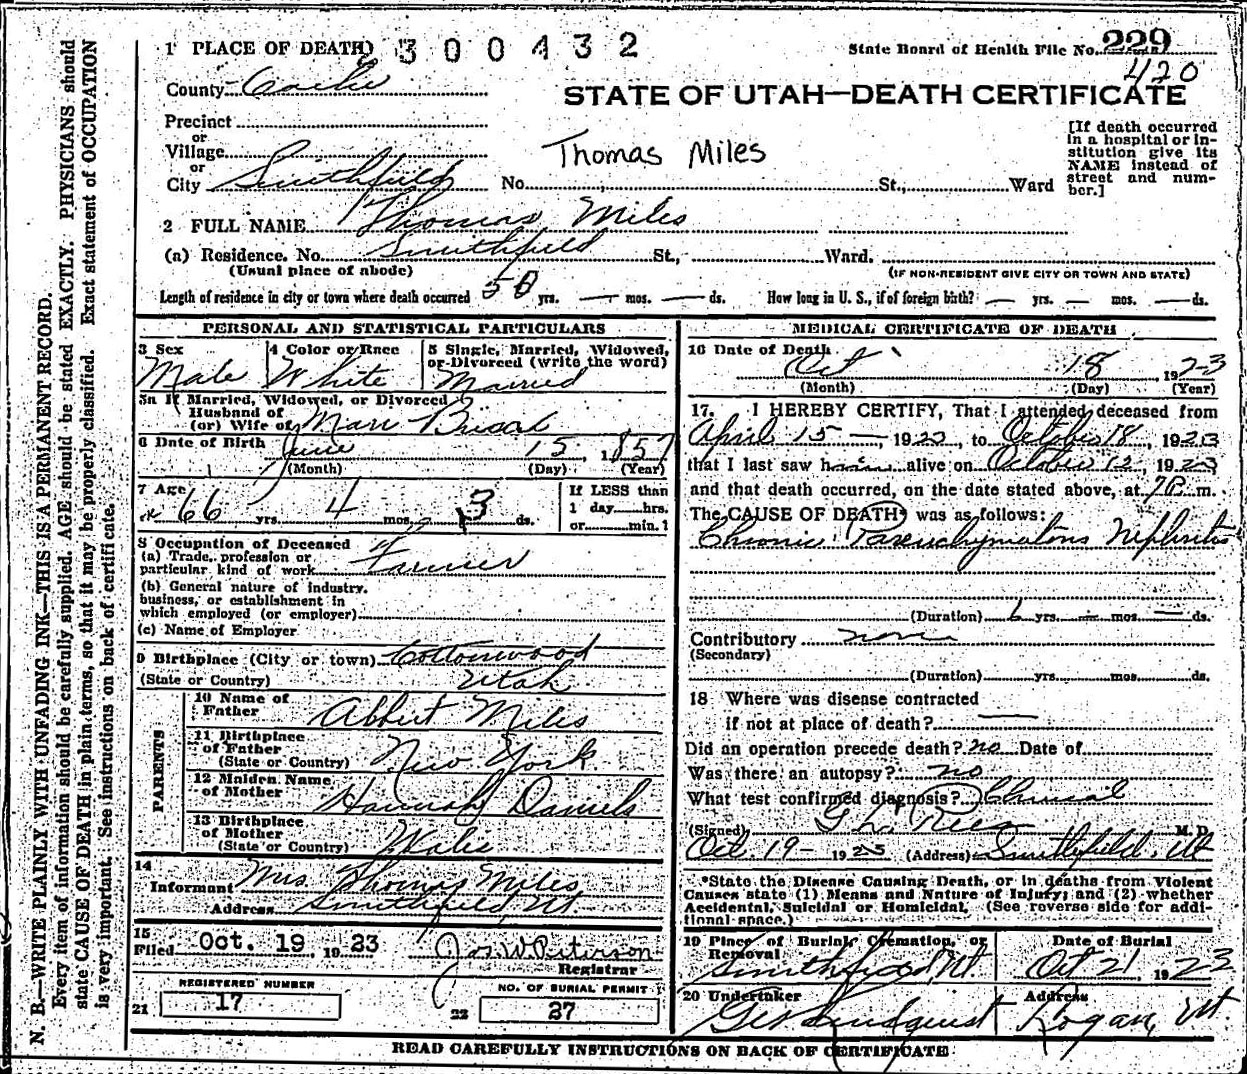 1 PLACE OF DEATH
300432
State Board of Health File No. 229
420
County Cache
STATE OF UTAH—DEATH CERTIFICATE
Precinct
or
Village
or
City Smithfield
Thomas Miles
No. St., Ward
[If death occurred in a hospital or in-
stitution give its
NAME instead of
street and num-
ber.]
2 FULL NAME Thomas Miles
(a) Residence. No. Smithfield St., Ward.
(Usual place of abode)
(IF NON-RESIDENT GIVE CITY OR TOWN AND STATE)
Length of residence in city or town where death occurred 50 yrs. — mos. — ds. How long in U. S., if of foreign birth? — yrs. — mos. — ds.
PERSONAL AND STATISTICAL PARTICULARS
3 Sex
Male
4 Color or Race
White
5 Single, Married, Widowed,
or Divorced (write the word)
Married
5a If Married, Widowed, or Divorced
Husband of
(or) Wife of
6 Date of Birth June 15, 1857
(Month) (Day) (Year)
7 Age
66 yrs. 4 mos. 3 ds.
If LESS than
1 day hrs.
or min.
8 Occupation of Deceased
(a) Trade, profession or
particular kind of work Farmer
(b) General nature of industry,
business, or establishment in
which employed (or employer)
(c) Name of Employer
9 Birthplace (City or town) Cottonwood
(State or Country) Utah
PARENTS
10 Name of
Father Albert Miles
11 Birthplace
of Father
(State or Country) New York
12 Maiden Name
of Mother Hannah Daniels
13 Birthplace
of Mother
(State or Country) Wales
14
Informant Mrs. Thomas Miles
Address Smithfield Ut.
15
Filed Oct. 19 1923 Jos. W. Peterson
Registrar
REGISTERED NUMBER
21 17
NO. OF BURIAL PERMIT
22 27
MEDICAL CERTIFICATE OF DEATH
16 Date of Death
Oct 18, 1923
(Month) (Day) (Year)
17. I HEREBY CERTIFY, That I attended deceased from
April 15 — 1923, to October 18, 1923
that I last saw him alive on October 12, 1923
and that death occurred, on the date stated above, at 7P m.
The CAUSE OF DEATH* was as follows:
Chronic Parenchymatous Nephritis
(Duration) 6 yrs. — mos. — ds.
Contributory none
(Secondary)
(Duration) yrs. mos. ds.
18 Where was disease contracted
if not at place of death? —
Did an operation precede death? no Date of
Was there an autopsy? no
What test confirmed diagnosis? Clinical
(Signed) G L Rees M. D.
Oct. 19 - 1923 (Address) Smithfield, Ut
*State the Disease Causing Death, or in deaths from Violent
Causes state (1) Means and Nature of Injury; and (2) whether
Accidental, Suicidal or Homicidal. (See reverse side for addi-
tional space.)
19 Place of Burial, Cremation, or
Removal
Smithfield Ut
Date of Burial
Oct 21, 1923
20 Undertaker
Lundquist
Address
Logan, Ut.
READ CAREFULLY INSTRUCTIONS ON BACK OF CERTIFICATE
N. B.—WRITE PLAINLY WITH UNFADING INK—THIS IS A PERMANENT RECORD.
Every item of information should be carefully supplied. AGE should be stated EXACTLY. PHYSICIANS should
state CAUSE OF DEATH in plain terms, so that it may be properly classified. Exact statement of OCCUPATION
is very important. See instructions on back of certificate.